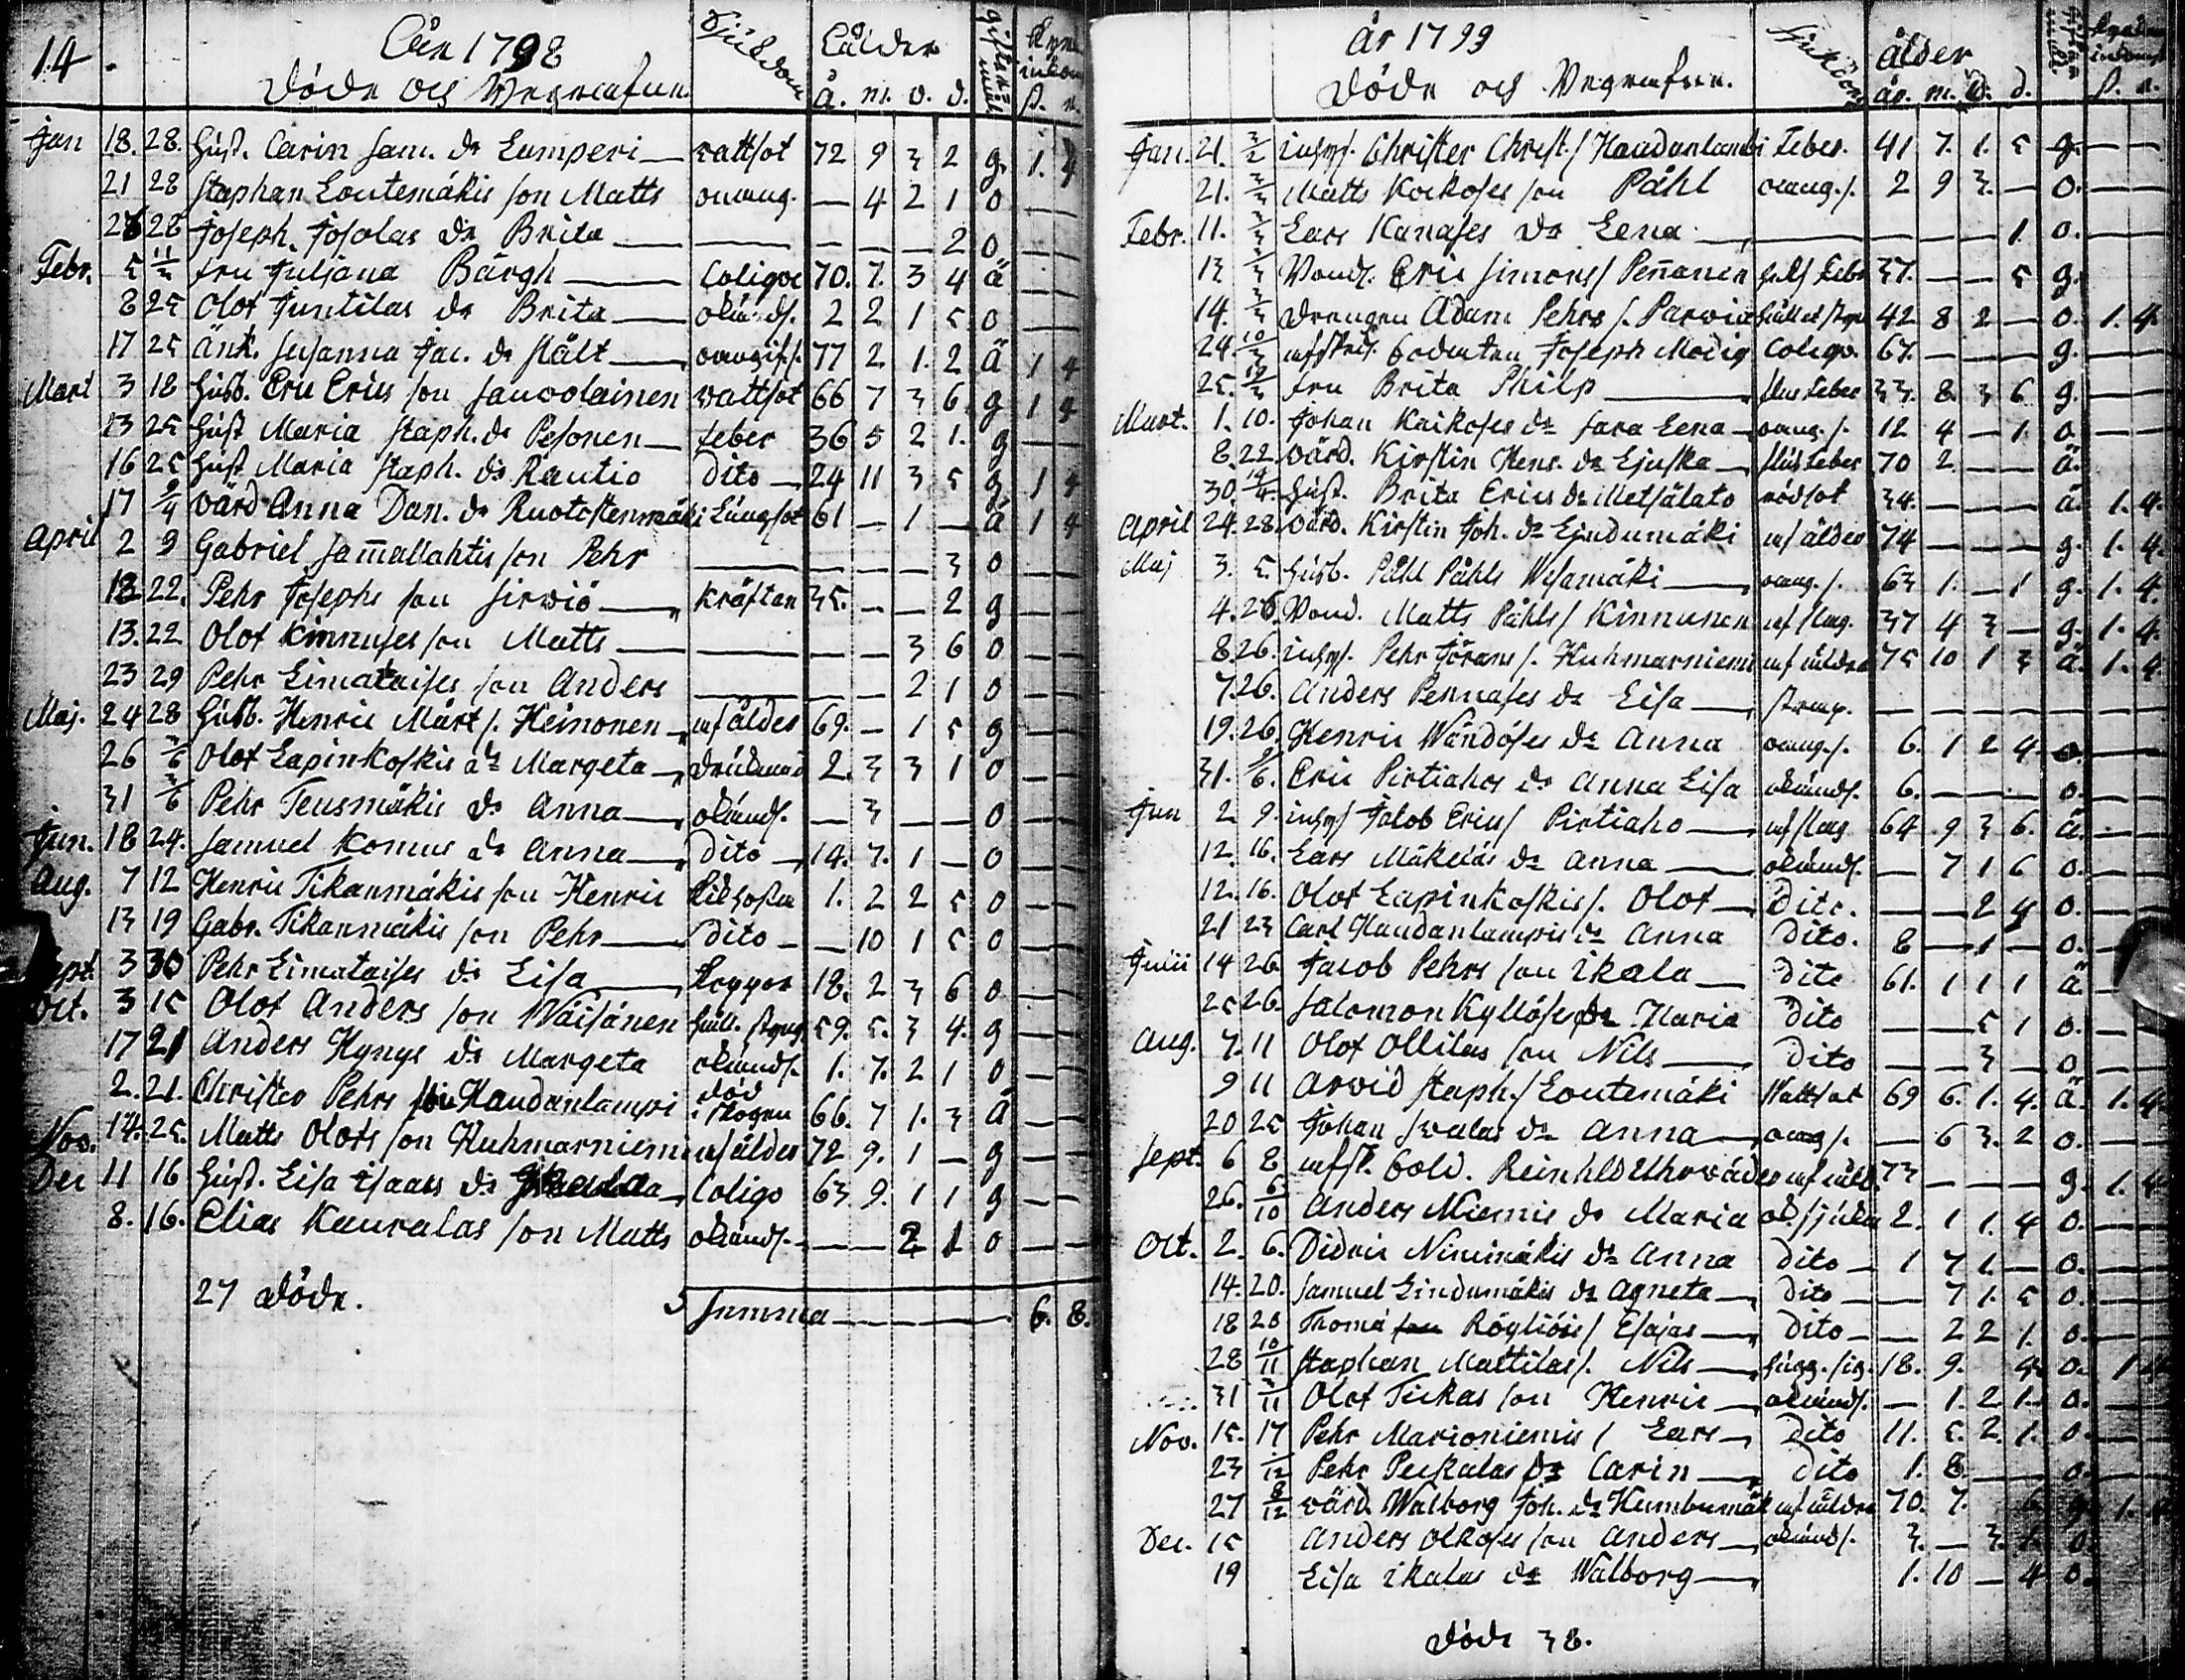 14.
År 1798
Döde och Begrafne.
Sjukdom
ålder
å. m. v. d.
Jan 18. 28. Hust. Carin Sam. dr Lamperi — wattsot 72 9 3 2 g. 1. 4
21 28 Staphan Loutemäkis son Matts — 4 2 1 0 —
28 28 Joseph Josolas dr Brita — — — — 2 0 —
Febr. 5 11/3 fru Juliana Bärgh — Coliqve 70. 7. 3 4 ä —
8 25 Olof Juntilas dr Brita — okänds. 2 2 1 5 0 —
17 25 Änk. Susanna Jac. dr Stält — 77 2. 1. 2 Ä 1 4
Mart 3 18 Husb. Eric Erics son Sauvolainen wattsot 66 7 3 6 g 1 4
23 25 Hust Maria Staph. dr Pesonen — feber 36 5 2 1. g —
16 25 Hust Maria Staph. dr Rautio dito — 24 11 3 5 g 1 4
17 9/4 värd Anna Dan. dr Ruotostenmäki Lungsot 61 — 1 — ä 1 4
April 2 9 Gabriel Jam̅allahtis son Pehr — — — — 3 0 —
18 22. Pehr Josephs son Sirwiö — kräftan 35. — — 2 g —
13. 22 Olof Kinnuses son Matts — — — 3 6 0 —
23 29 Pehr Limataises son Anders — — — 2 1 0 —
Maj. 24 28 Husb. Henric Mårt s. Heinonen — af ålder 69. — 1 5 g —
26 3/6 Olof Lapinkoskis dr Margeta — 2. 3 3 1 0 —
31 3/6 Pehr Teusmäkis dr Anna — okänds. — 3 — — 0 —
Jun. 18 24. Samuel Komus dr Anna — Dito — 14. 7. 1 — 0 —
Aug. 7 12 Henric Tikanmäkis son Henric Kikhosta 1. 2 2 5 0 —
13 19 Gabr. Tikanmäkis son Pehr — Dito — — 10 1 5 0 —
Sept. 3 30 Pehr Limataises dr Lisa — koppor 18. 2 3 6 0 —
Oct. 3 15 Olof Anders son Wäisänen håll. styng 59. 5. 3 4. g —
17 21 Anders Kynys dr Margeta okänds. 1. 7. 2 1 0 —
2. 21. Christer Pehrs son Haudanlampi död i skogen 66. 7 1. 3 Ä —
Nov. 14. 25. Matts Olofs son Kuhmarniemi af ålder 72 9. 1 — g —
Dec 11 16 Hust. Lisa Isaacs dr — Coliqv 63. 9. 1 1 g —
8. 16. Elias Kauralas son Matts okänds. — — 2 1 0 —
27 döde. Summa — 6. 8.
år 1799
Döde och Begrafne.
Sjukdom
ålder
år. m. v. d.
Jan. 21. 3/2 inhys. Christer Christ. s Haudanlambi Feber. 41 7. 1. 5 g. —
21. 3/2 Matts Kockoses son Påhl 2 9 3. — 0. —
Febr. 11. 3/3 Lars Kanases dr Lena — — — 1. 0. —
13 3/3 Bond. Eric Simons s Pen̅anen 37. — — 5 g.
14. 3/3 drengen Adam Pehrs s. Parviai håll et styn 42 8 2 — 0. 1. 4.
24 10/3 afsked. Soldaten Joseph Modig Coliqv. 67. — — — g. —
25. 19/3 fru Brita Philp — 33. 8. 3 6 g. —
Mart. 1. 10. Johan Kaikoses dr Sara Lena — 12 4 — 1 0. —
8. 22. värd. Kirstin Henr. dr Ljuska — 70 2. — — ä.
30. 14/4. Hust. Brita Erics dr Metsälato rödsot 34. — — — ä. 1. 4.
April 24. 28. värd. Kirstin Joh. dr Lindumäki af ålder 74 — — — g. 1. 4.
Maj 3. 5. Husb. Påhl Påhls Wesamäki — 63 1. — 1 g. 1. 4.
4. 26. Bond. Matts Påhls s Kinnunen af slag. 37 4 3 — g. 1. 4.
8. 26. inhys. Pehr Jörans s. Kuhmarniemi af ålder 75 10 1 3 ä. 1. 4.
7. 26. Anders Pennases dr Lisa — — — — —
19. 26. Henric Wändöses dr Anna 6. 1 2 4 0. —
31. 9/6. Eric Pirtiahos dr Anna Lisa okänds. 6. — — — 0. —
Jun 2 9. inhys Jacob Erics s Pirtiaho — af slag 64 9 3 6. ä. —
12. 16. Lars Mäkeläs dr Anna — okänds. — 7 1 6 0. —
12. 16. Olof Lapinkoskis s. Olof — Dito. — — 2 4 0. —
21 23 Carl Haudanlampis dr Anna Dito. 8 — 1 — 0. —
Julii 14 26 Jacob Pehrs son Ikala — Dito 61. 1 1 1 ä. —
25 26. Salomon Kyllöses dr Maria Dito — — 5 1 0. —
Aug. 7. 11 Olof Ollilas son Nils — Dito — — 3 — 0 —
9 11 Arvid Staph. s Loutemäki Wattsot 69 6. 1. 4. ä. 1. 4.
20 25 Johan dr Anna — — 6 3. 2 0. —
Sept. 6 8 afsk. Sold. Reinhld Uhrväder af åld. 73 — — — g. 1. 4.
26. 6/10 Anders Niemis dr Maria ok. sjukd 2. 1 1. 4 0. —
Oct. 2. 6. Didric Niinimäkis dr Anna Dito — 1 7 1. — 0. —
14. 20. Samuel Lindumäkis dr Agneta — Dito — — 7 1. 5 0. —
18 20 Thoma Röyliöis s Esajas — Dito — — 2 2 1. 0. —
28 10/11 Staphan Mattilas s. Nils — 18. 9. 4. 0. 1 4
31 3/11 Olof Tickas son Henric — okänds. — 1. 2 1. 0. —
Nov. 15. 17 Pehr Marioniemis s Lars — Dito 11. 5. 2. 1. 0. —
23 /12 Pehr Peckalas dr Carin — Dito 1. 8. — 0. —
27 8/12 värd. Walborg Joh. dr Humbumäk af ålder 70. 7. 6 g. 1. 4
Dec. 15 Anders Olkoses son Anders — okänds. 3. — 3. 1. 0.
19 Lisa Ikalas dr Walborg — 1. 10 — 4 0.
Döde 38.